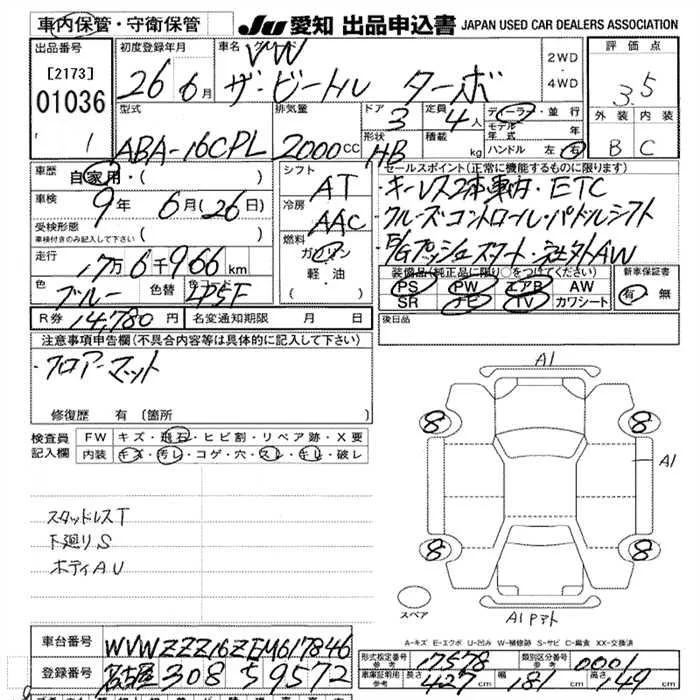 車内保管・守衛保管
JU 愛知 出品申込書 JAPAN USED CAR DEALERS ASSOCIATION
出品番号 初度登録年月 車名 グレード 評価点
[2173]
01036
1
26 6月
VW
ザ・ビートル ターボ
2WD
・
4WD
3.5
外装 内装
B C
型式 排気量 ドア 定員 ディーラー・並行
ABA-16CPL 2000cc 3 4人
モデル年式 年
形状 積載 kg
HB
ハンドル 左 右
車歴 自家用・( )
車検 9年 6月(26日)
受検形態
車検付きのみ記入して下さい ( )
走行 17万6千966km
色 ブルー 色替 カラーコード LP5F
R券 14,780円 名変通知期限 月 日
シフト AT
冷房 AAC
燃料 ガソリン
・
軽油
( )
セールスポイント(正常に機能するものに限ります)
・キーレス2本車内・ETC
・クルーズコントロール・パドルシフト
・E/Gプッシュスタート・社外AW
装備品(純正品に限り○をつけてください) 新車保証書
PS PW エアB AW
SR ナビ TV カワシート
有・無
後日品
注意事項申告欄(不具合内容等は具体的に記入して下さい)
・フロアーマット
修復歴 有 (箇所
検査員記入欄
FW キズ・飛石・ヒビ割・リペア跡・X要
内装 キズ・汚レ・コゲ・穴・スレ・キレ・破レ
スタッドレスT
下廻りS
ボディAU
A1
8 8
A1
8 8
スペア
A1アト
A-キズ E-エクボ U-凹み W-補修跡 S-サビ C-腐食 XX-交換済
車台番号 WVWZZZ16ZEM617846
登録番号 名古屋 308 さ 9572
形式指定番号 参考 17578 類別区分番号 参考 0001
車庫証明用 参考 長さ 427cm 幅 181cm 高さ 149cm